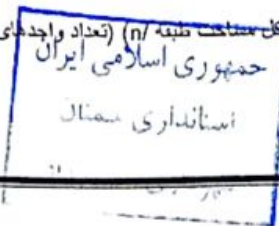 کل مساحت طبقه /n) (تعداد واحدهای
جمهوری اسلامی ایران
استانداری سمنان